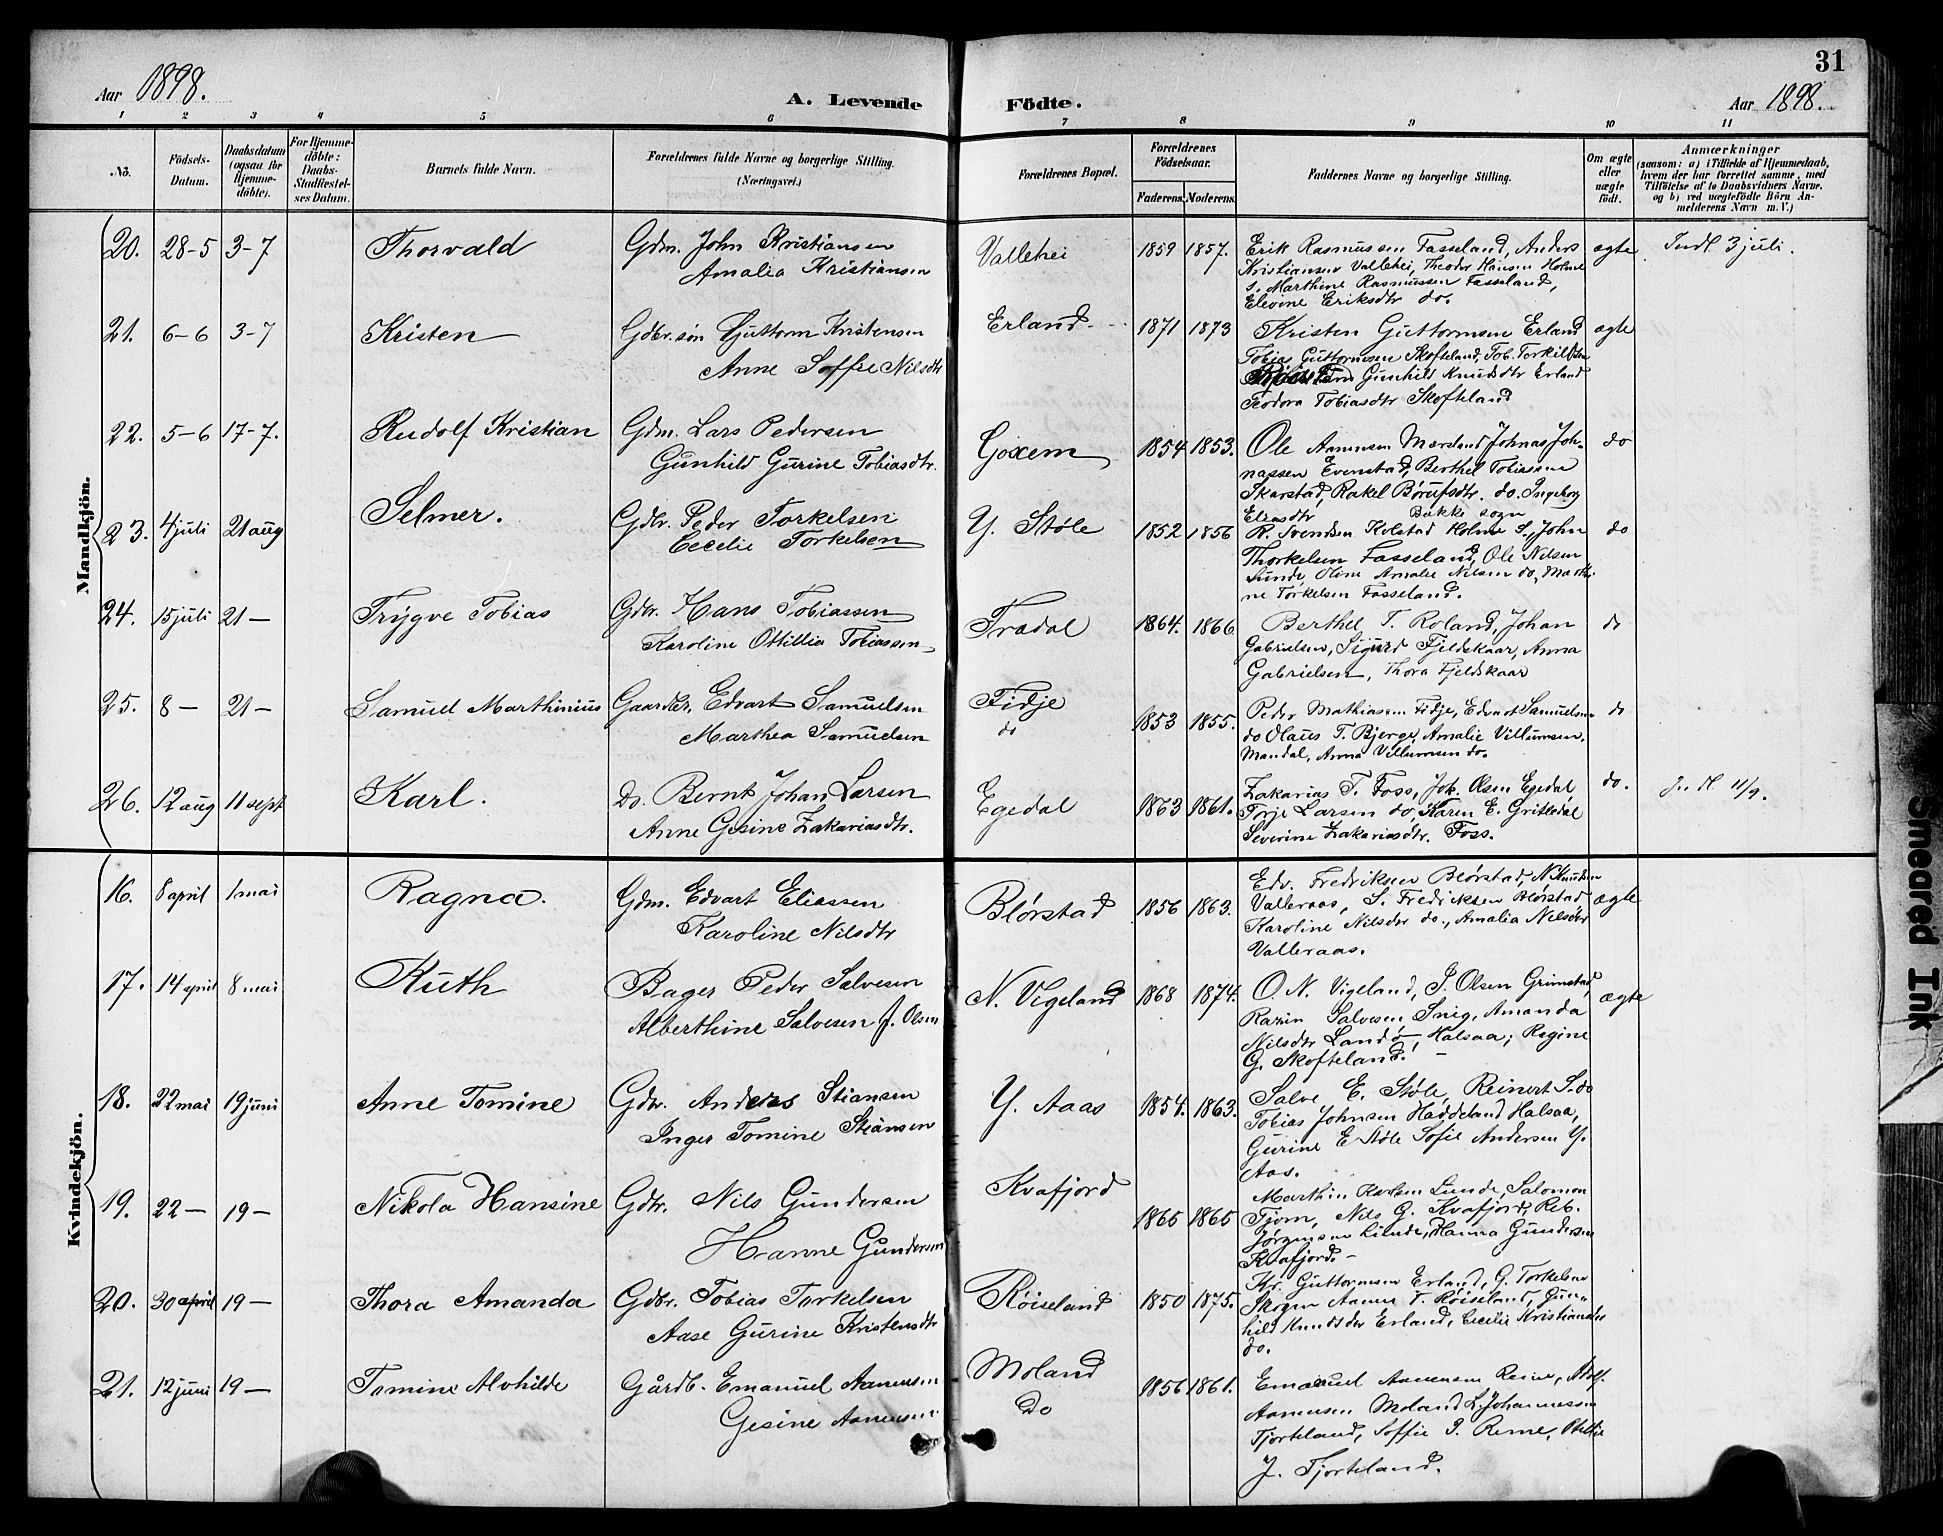 31
Aar 1898.
A. Levende Födte.
Aar 1898.
1 2 3 4 5 6 7 8 9 10 11
No.
Födsels-Datum.
Daabsdatum (ogsaa for Hjemme-döbte).
For Hjemme-döbte: Daabs-Stadfæstel-ses Datum.
Barnets fulde Navn.
Forældrenes fulde Navne og borgerlige Stilling.
(Næringsvei.)
Forældrenes Bopæl.
Forældrenes Födselsaar.
Faderens. Moderens.
Faddernes Navne og borgerlige Stilling.
Om ægte eller uægte födt.
Anmærkninger
(saasom: a) i Tilfælde af Hjemmedaab,
hvem der har forrettet samme, med
Tilföielse af to Daabsvidners Navne.
og b) ved uægtefödte Börn An-
melderens Navn m. V.)
Mandkjön.
20. 28-5 3-7 Thorvald Gdm. John Kristiansen
Amalia Kristiansen
Vallehei 1859 1857. Erik Rasmussen Fasseland, Anders ægte Indl 3 juli.
Kristiansen Vallehei, Theodor Hansen Holme
s. Marthine Rasmussen Fasseland,
Elevine Eriksdtr do.
21. 6-6 3-7 Kristen Gdbr. søn Guttorm Kristensen
Anne Soffie Nilsdtr
Erland 1871 1873 Kristen Guttormsen Erland ægte
Tobias Guttormsen Skofteland, Tob. Torkildsen
Gunhild Knudsdtr Erland
Teodora Tobiasdtr Skofteland
22. 5-6 17-7. Rudolf Kristian Gdm. Lars Pedersen
Gunhild Gurine Tobiasdtr.
Goxem 1854 1853. Ole Aanensen Mærsland Johnas Joh- do
nassen Evenstad, Berthel Tobiassen
Skarstad, Rakel Børufsdtr. do. Ingeborg
Eliasdtr Bakke sogn
23. 4 juli 21 aug Selmer. Gdbr. Peder Torkelsen
Cecelie Torkelsen
Y. Støle 1852 1856 R. Svendsen Kolstad Holme S., John do
Thorkelsen Fasseland, Ole Nilsen
Lunde, Oline Amalie Nilsen do, Marthi-
ne Torkelsen Fasseland.
24. 15 juli 21 — Trygve Tobias Gdbr. Hans Tobiassen
Karoline Ottillia Tobiassen
Trædal 1864. 1866 Berthel T. Roland, Johan do
Gabrielsen, Sigurd Fjeldskaar, Anna
Gabrielsen, Thora Fjeldskaar
25. 8 — 21 — Samuel Marthinius Gaardbr. Edvart Samuelsen
Marthea Samuelsen
Fidje do 1853 1855. Peder Mathiassen Fidje, Edvart Samuelsen do
do Olaus T. Bjerge, Amalie Villumsen,
Mandal, Anna Villumsen do.
26. 12 aug 11 sept Karl. do. Bernt Johan Larsen
Anne Gesine Zakariasdtr.
Egedal 1863 1861. Zakarias T. Foss, Joh. Olsen Egedal do. 11/9.
Torje Larsen do, Karen E. Grittedal
Severine Zakariasdtr. Foss.
Kvindekjön.
16. 8 april 1 mai Ragna. Gdm. Edvart Eliassen
Karoline Nilsdtr
Blørstad 1856 1863. Edv. Fredriksen Blørstad, N. Knudsen
Valleraas, S. Fredriksen Blørstad, ægte
Karoline Nilsdtr do., Amalia Nilsdtr
Valleraas.
17. 14 april 8 mai Ruth Bager Peder Salvesen
Alberthine Salvesen f. Olsen
N. Vigeland 1868 1874. O. N. Vigeland, S. Olsen Grimstad, ægte
Razin Salvesen Snig, Amanda
Nilsdtr Landø, Halsaa; Regine
G. Skofteland. —
18. 22 mai 19 juni Anne Tomine Gdbr. Anders Stiansen
Inger Tomine Stiansen
Y. Aaas 1854. 1863. Salve E. Støle, Reinert S. do
Tobias Johnsen Haddeland Halsaa,
Gurine E Støle Sofie Andersen Y.
Aas.
19. 22 — 19 — Nikola Hansine Gdbr. Nils Gundersen
Hanne Gundersen
Kvafjord 1865 1865 Marthin Karlsen Lunde, Salomon
Tjom, Nils G. Kvafjord, Reb.
Jørgensen Lunde, Hanna Gundersen
Kvafjord. —
20. 30 april 19 — Thora Amanda Gdbr. Tobias Torkelsen
Aase Gurine Kristensdtr
Røiseland 1850 1875. Kr. Guttormsen Erland, G. Torkelsen
Skogen Aanen T. Røiseland, Gun-
hild Knudsdtr Erland, Cecilie Kristiansdtr
do.
21. 12 juni 19 — Tomine Alvhilde Gårdb. Emanuel Aanensen
Gesine Aanensen
Moland do 1856 1861. Emanuel Aanensen Reime, Adolf.
Aanensen Moland L. Johannessen
Tjorteland, Soffie P. Reme,
J. Tjorteland.
Smeared Ink